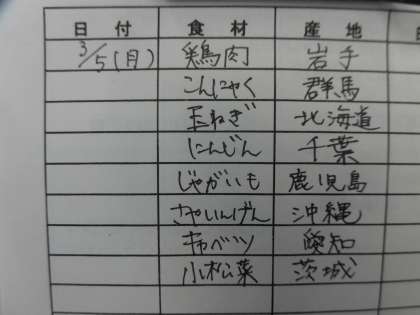 日付 食材 産地
3/5(月) 鶏肉 岩手
こんにゃく 群馬
玉ねぎ 北海道
にんじん 千葉
じゃがいも 鹿児島
さやいんげん 沖縄
キャベツ 愛知
小松菜 茨城